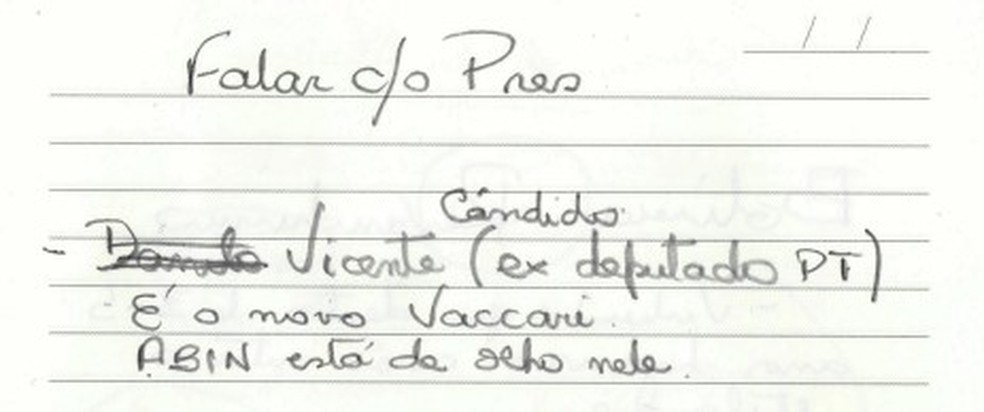 Falar c/o Pres
Cândido
- Vicente (ex deputado PT)
É o novo Vaccari.
ABIN está de olho nele.